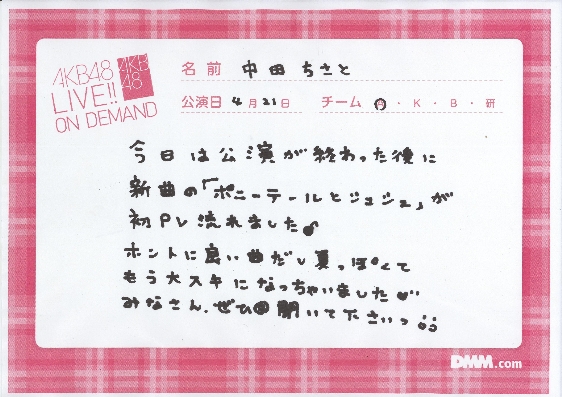 AKB48
LIVE!!
ON DEMAND
AKB
48
名前 中田ちさと
公演日 4月21日 チーム A・K・B・研
今日は公演が終わった後に
新曲の「ポニーテールとシュシュ」が
初PV流れました♪
ホントに良い曲だし夏っぽくて
もう大スキになっちゃいました♡
みなさん、ぜひ聞いて下さいっ
DMM.com